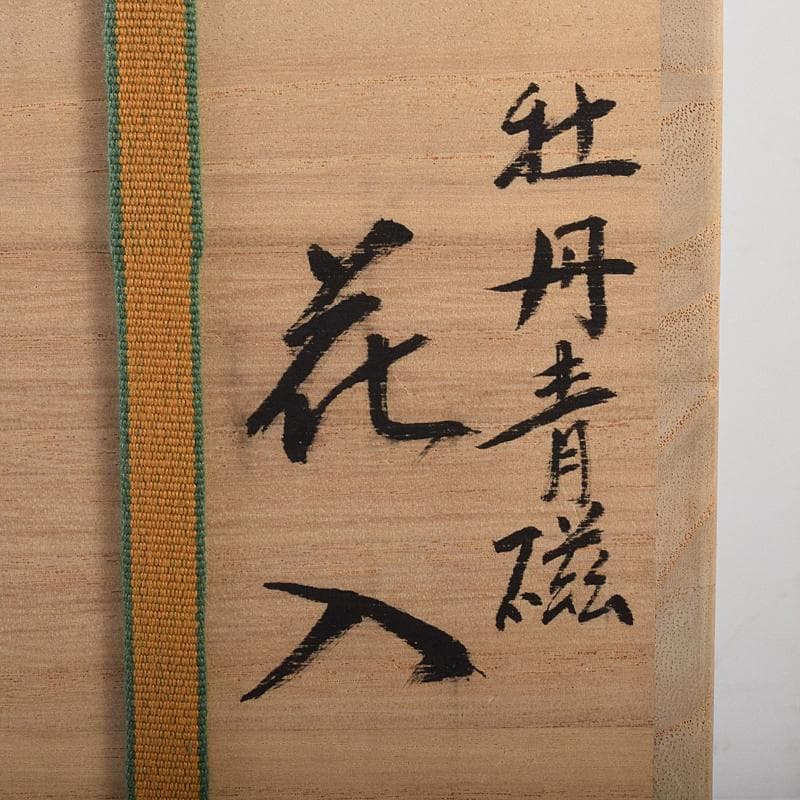 牡丹青磁
花入